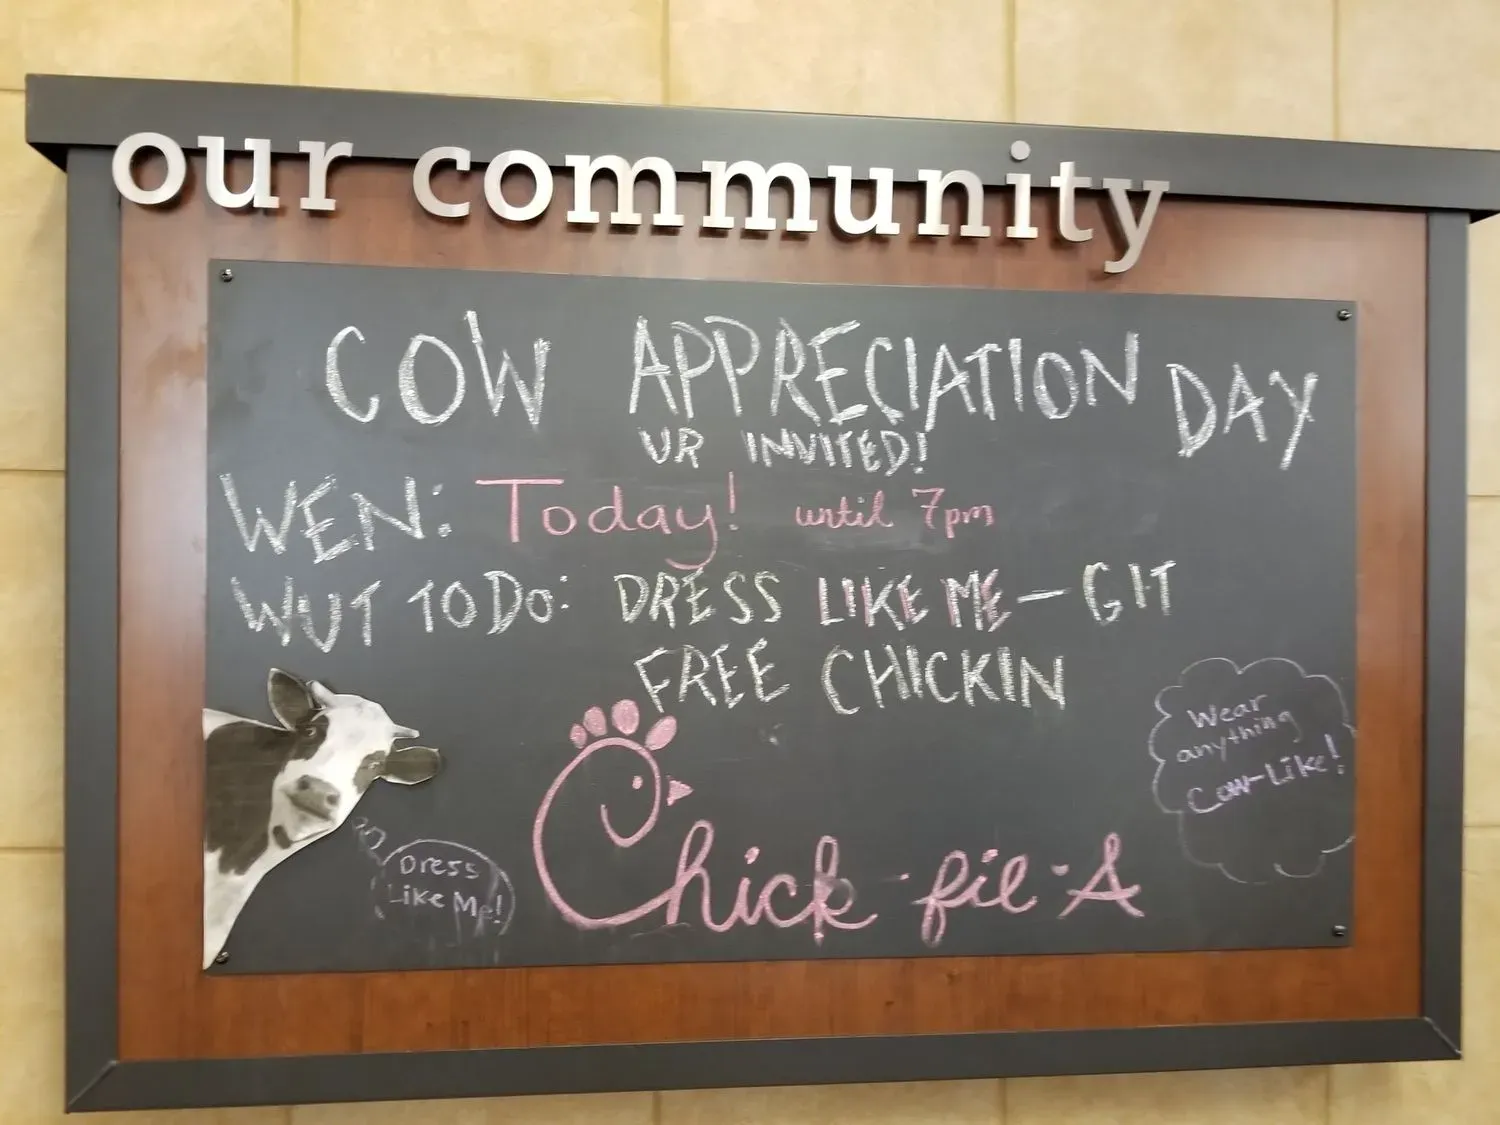 our community
COW APPRECIATION DAY
UR INVITED!
WEN: Today! until 7pm
WUT TO DO: DRESS LIKE ME - GIT
FREE CHICKIN
Wear
anything
Cow-Like!
Dress
Like Me!
Chick-fil-A